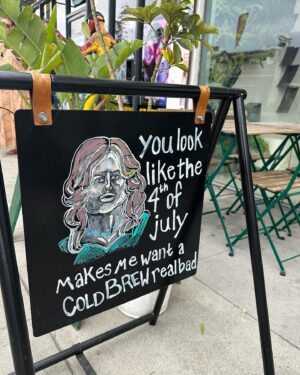 you look
like the
4th of
july
makes me want a
COLD BREW real bad